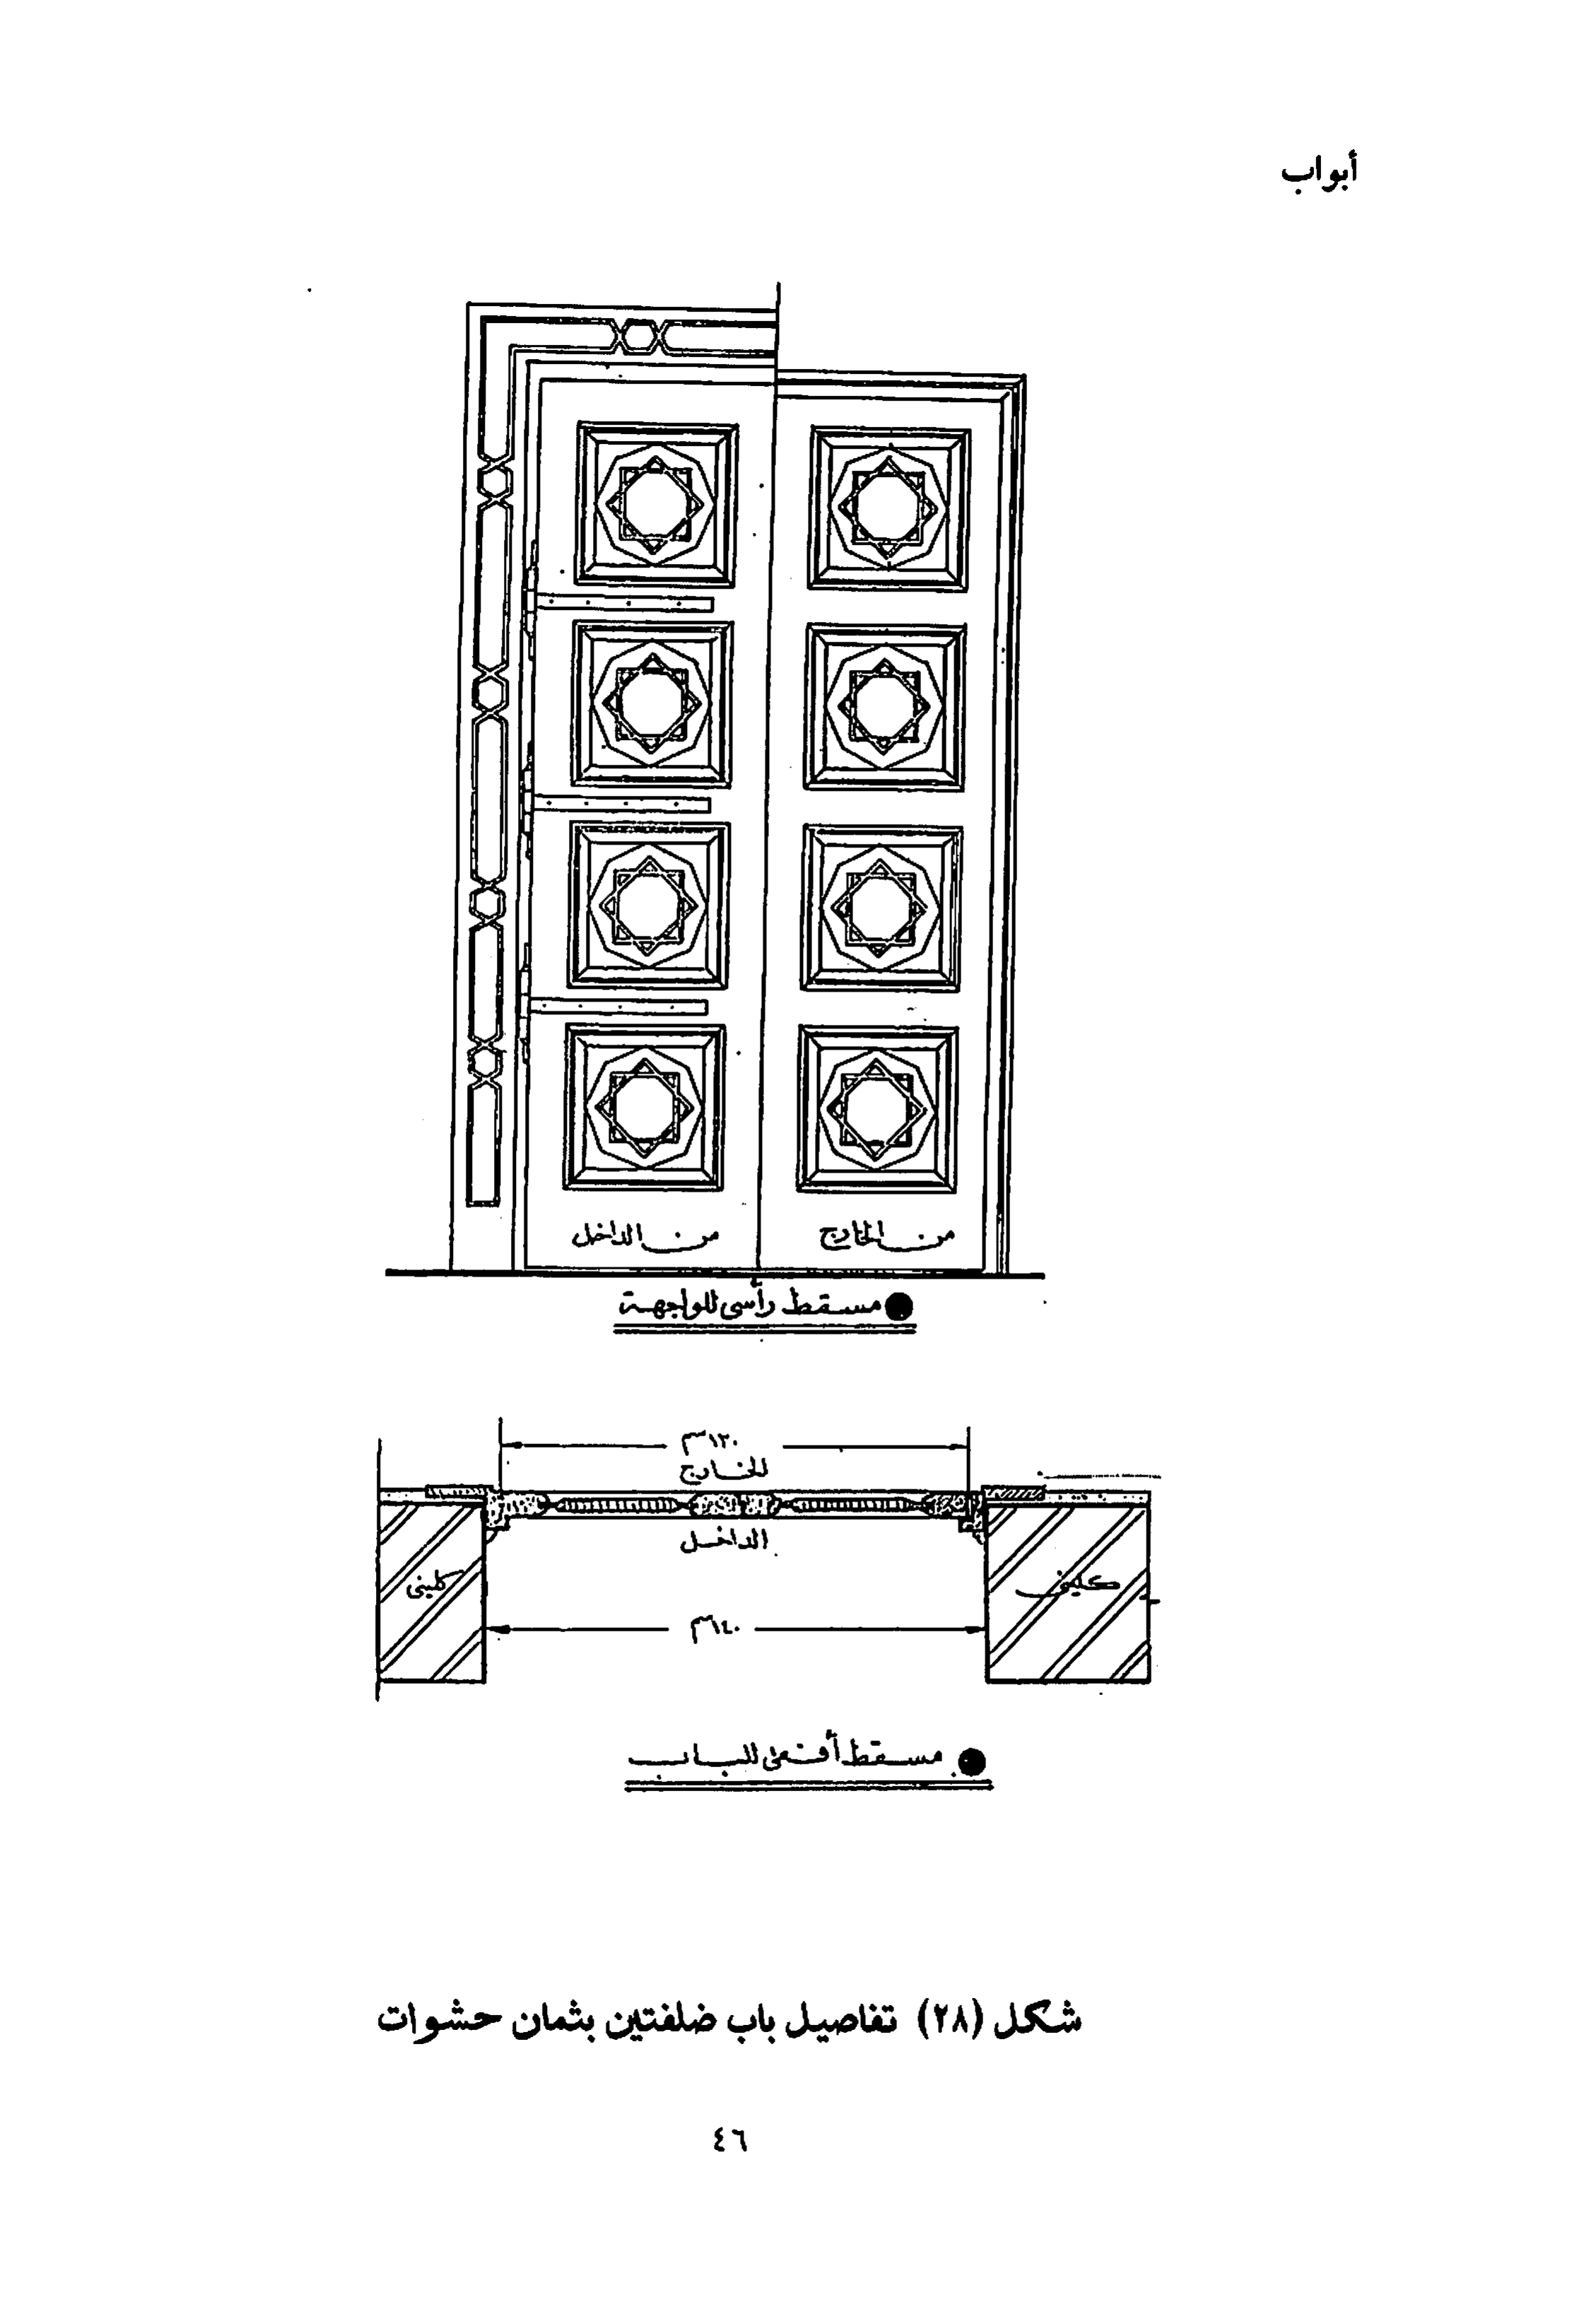 أبواب
من الداخل
من الخارج
مسقط رأسى للواجهة
١٣٠سم
الخارج
الداخل
١٤٠سم
مسقط أفقى للباب
شكل (٢٨) تفاصيل باب ضلفتين بثمان حشوات
٤٦